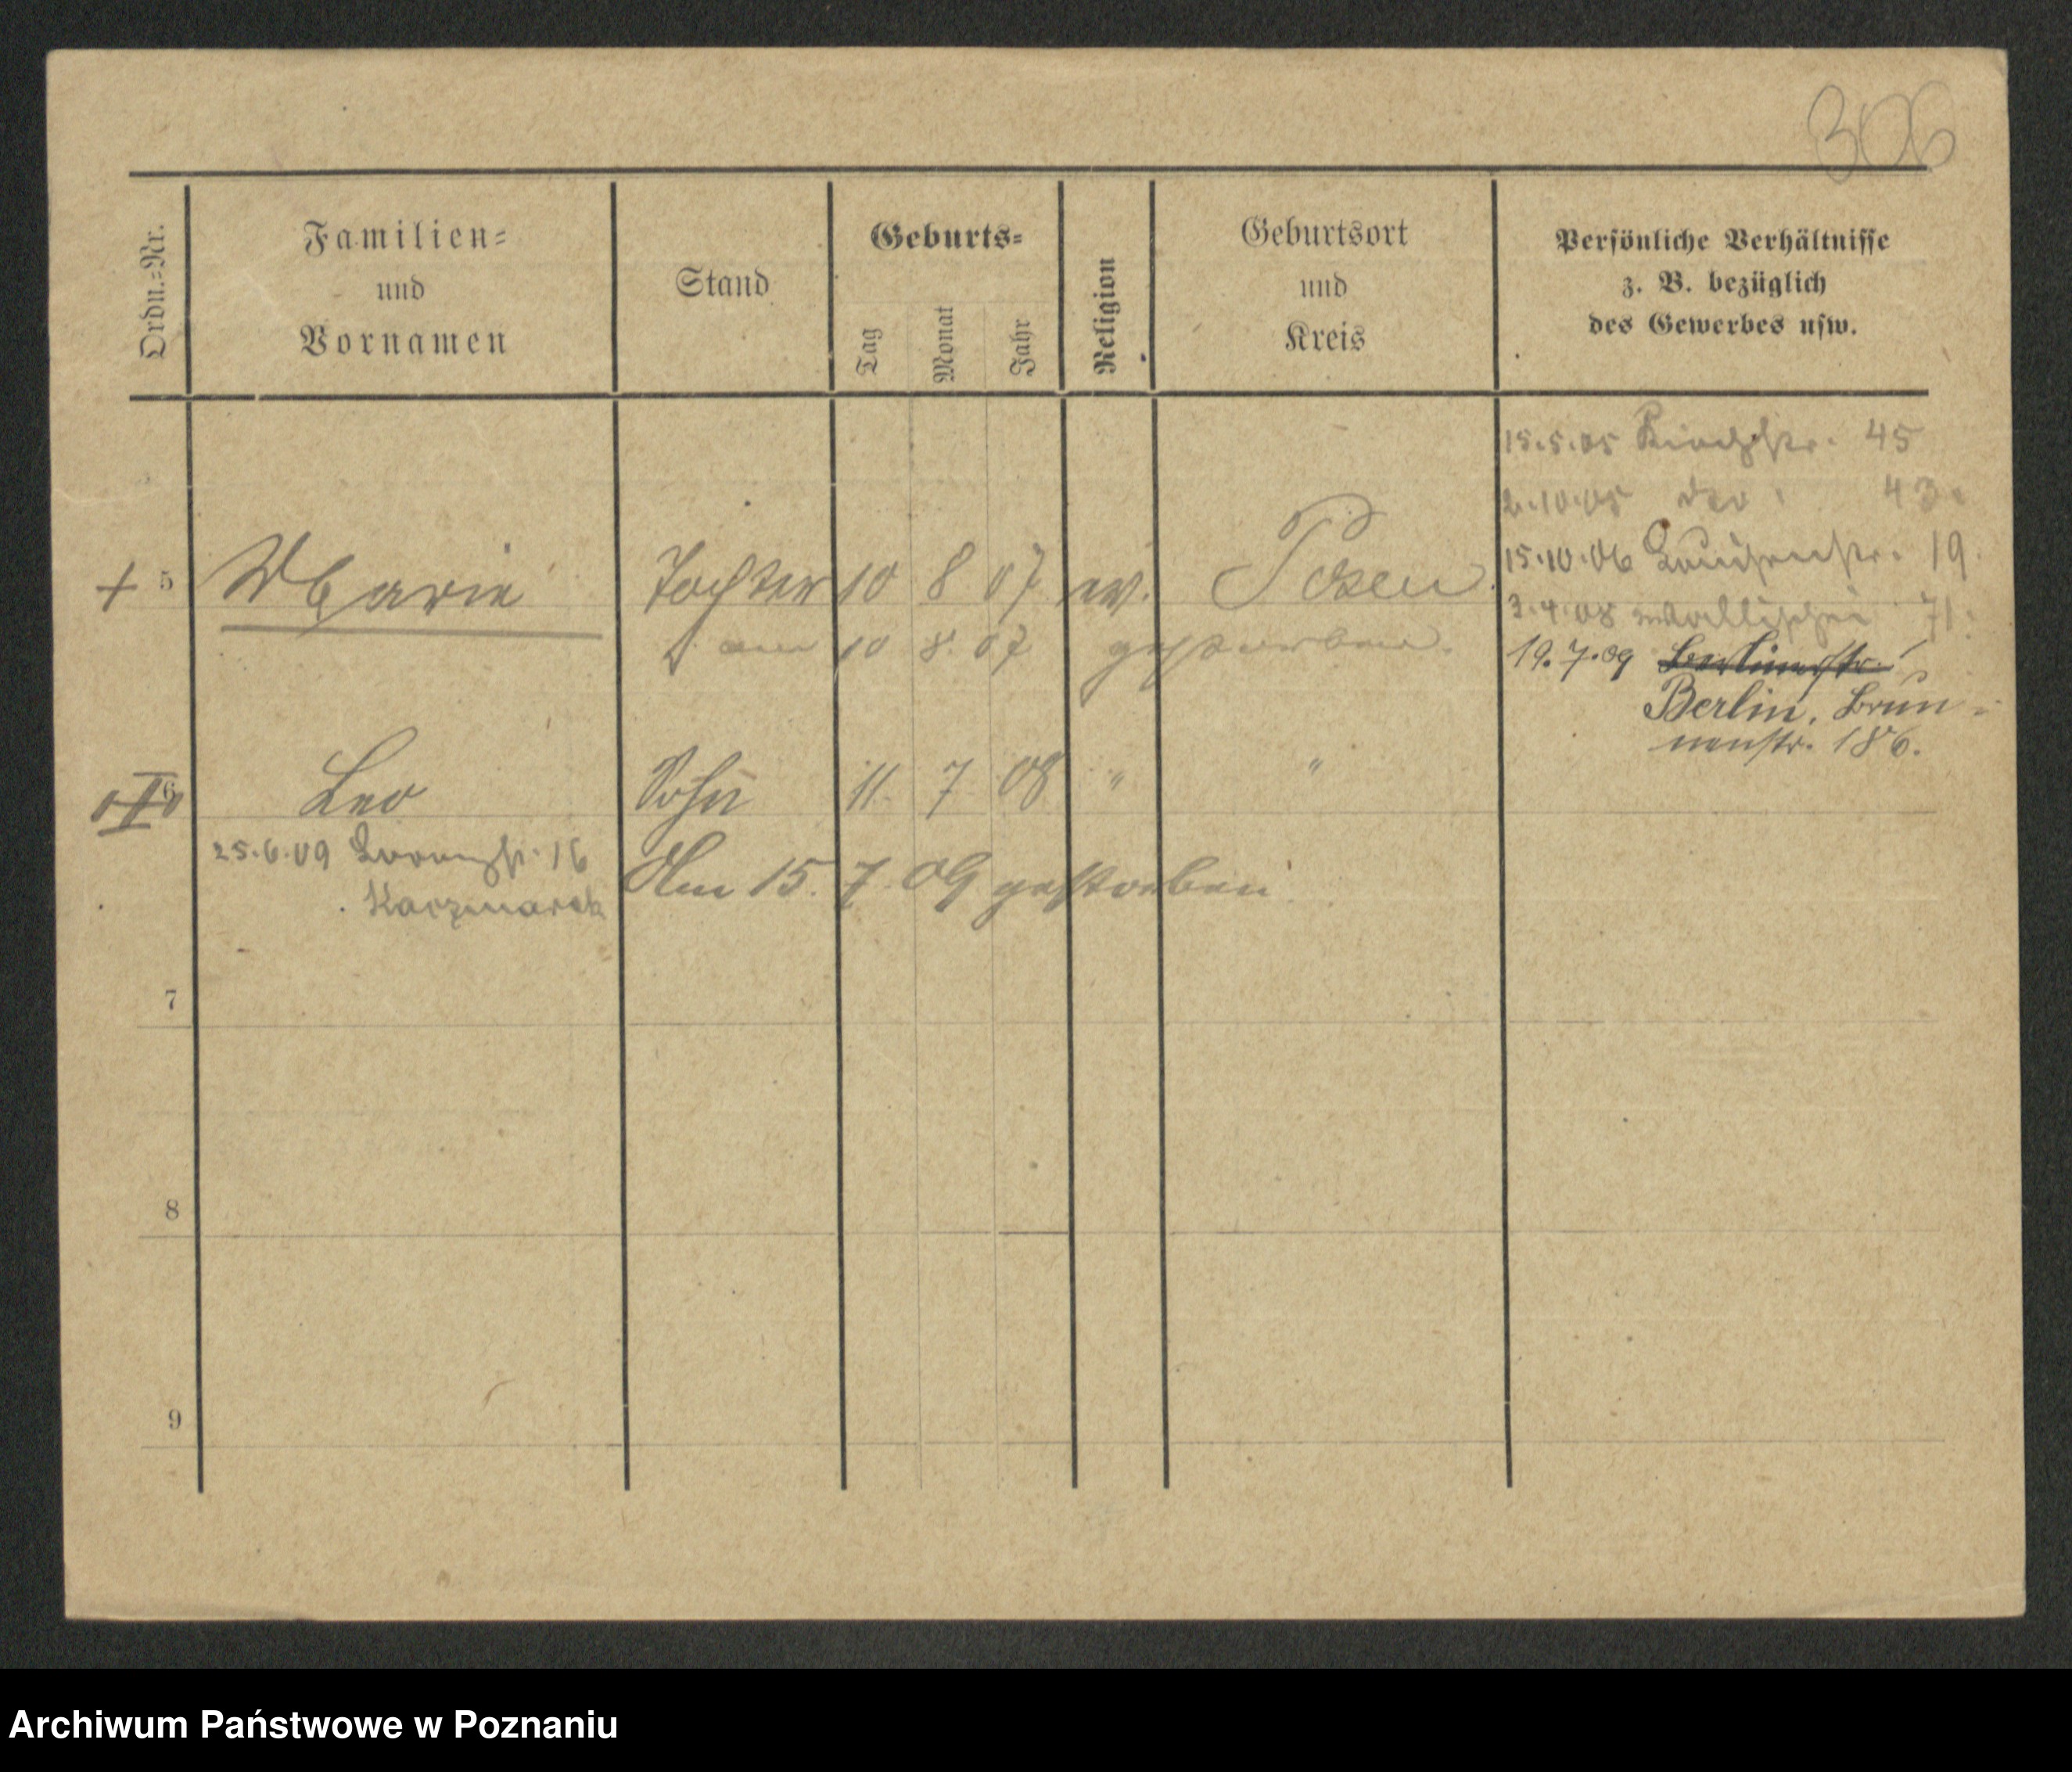 306
Ordn.=Nr.
Familien=
und
Vornamen
Stand
Geburts=
Tag
Monat
Jahr
Religion
Geburtsort
und
Kreis
Persönliche Verhältnisse
z. B. bezüglich
des Gewerbes usw.
15.5.05 45
2.10.05 dto 43
15.10.06 Louisenstr. 19.
3.4.08 Wallischei 71.
19.7.09 Berlinerstr.
Berlin, Brun-
nenstr. 186.
+ 5 Marie Tochter 10 8 07 ev. Posen
am 10 8. 07 gestorben.
6 Leo Sohn 11. 7. 08 " "
25.6.09 16
Kaczmarek
Am 15. 7. 09 gestorben
7
8
9
Archiwum Państwowe w Poznaniu